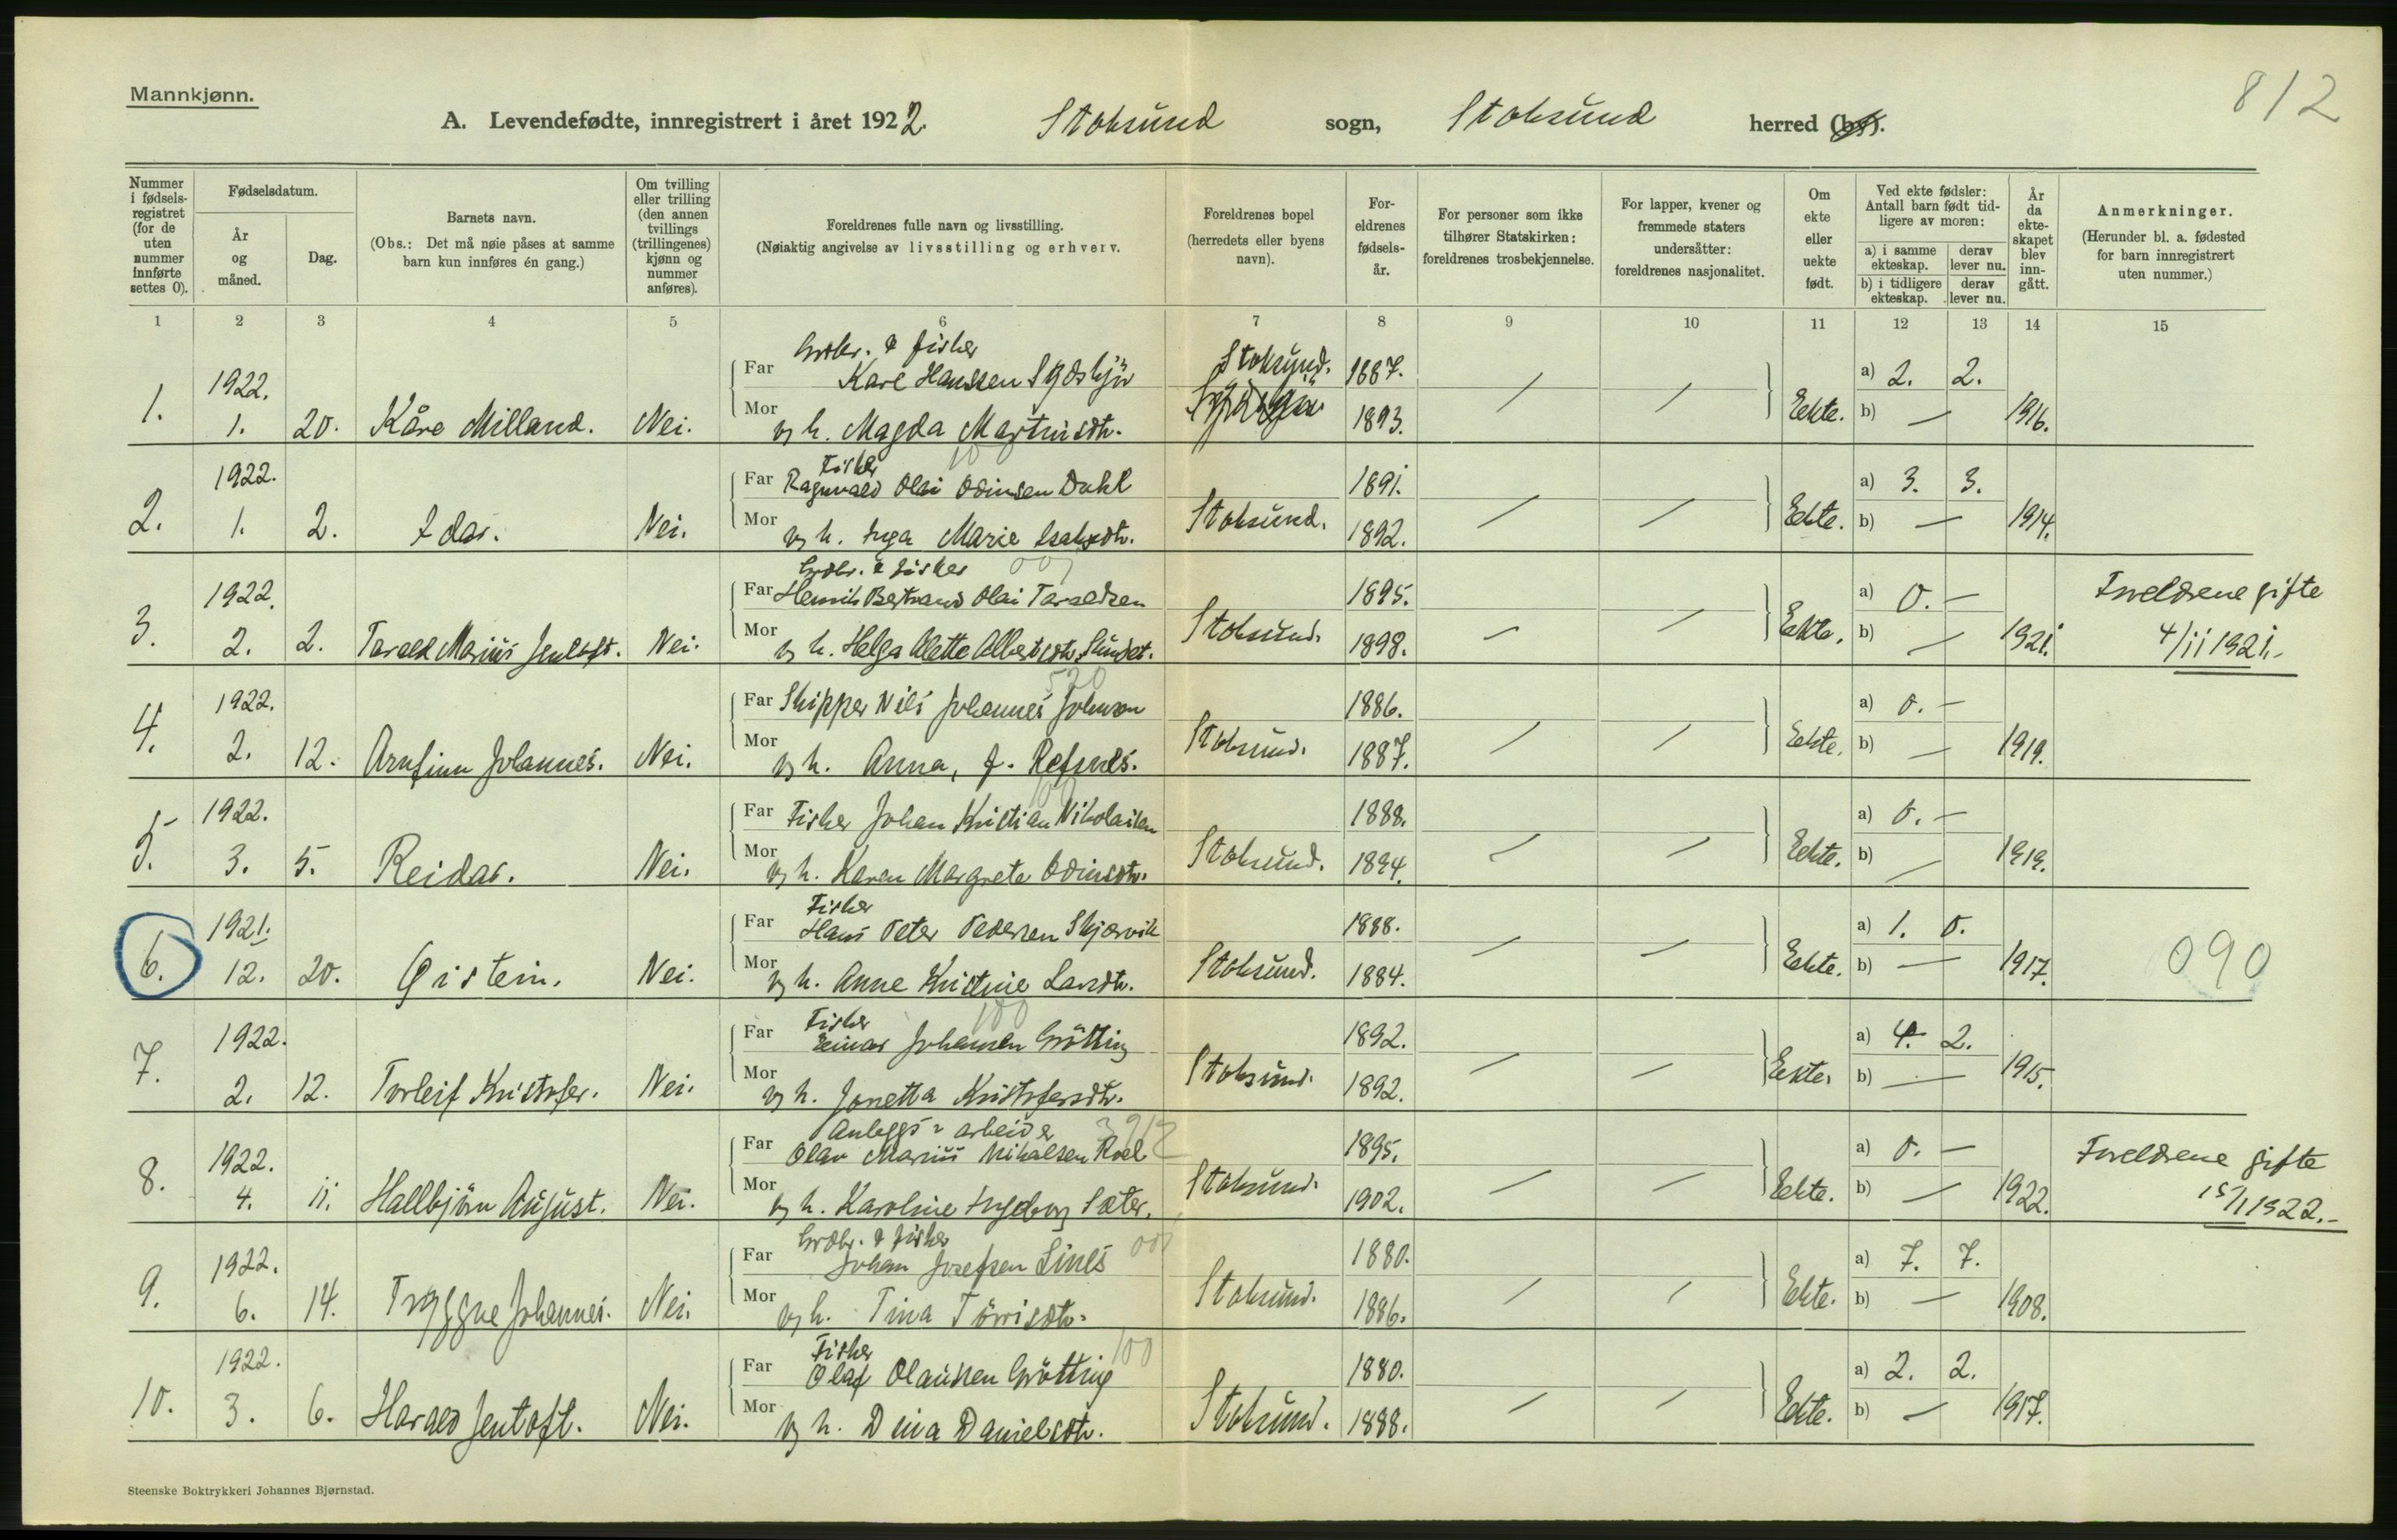 Mannkjønn.
812
A. Levendefødte, innregistrert i året 1922. Stoksund sogn, Stoksund herred (by).
Nummer i fødsels-registret (for de uten nummer innførte settes 0).
Fødselsdatum.
År og måned.
Dag.
Barnets navn.
(Obs.: Det må nøie påses at samme barn kun innføres én gang.)
Om tvilling eller trilling (den annen tvillings (trillingenes) kjønn og nummer anføres).
Foreldrenes fulle navn og livsstilling.
(Nøiaktig angivelse av livsstilling og erhverv.
Foreldrenes bopel (herredets eller byens navn).
For-eldrenes fødsels-år.
For personer som ikke tilhører Statskirken: foreldrenes trosbekjennelse.
For lapper, kvener og fremmede staters undersåtter: foreldrenes nasjonalitet.
Om ekte eller uekte født.
Ved ekte fødsler: Antall barn født tid-ligere av moren:
a) i samme ekteskap.
derav lever nu.
b) i tidligere ekteskap.
derav lever nu.
År da ekte-skapet blev inn-gått.
Anmerkninger.
(Herunder bl. a. fødested for barn innregistrert uten nummer.)
1 2 3 4 5 6 7 8 9 10 11 12 13 14 15
Grdbr. & fisker
1922. Far Kare Hanssen Stoksund. 1887. / / a) 2. 2.
1. 1. 20. Kåre Milland. Nei. Mor og h. Magda Martinsdtr. 1893. Ekte. b) — 1916.
100
Fisker
1922. Far Ragnvald Olai Odinsen Dahl 1891. / / a) 3. 3.
2. 1. 2. Idar. Nei. Mor og h. Inga Marie Isaksdtr. Stoksund. 1892. Ekte. b) — 1914.
Grdbr. & fisker 007
1922. Far Henrik Bertrand Olai Taraldsen 1895. a) 0. — Foreldrene gifte
3. 2. 2. Tarald Marius Jentoft. Nei. Mor og h. Helga Alette Albertsdtr. Sundet. Stoksund. 1898. / / Ekte. b) — 1921. 4/11 1921.-
520
1922. Far Skipper Nils Johannes Johnsen 1886. a) 0. —
4. 2. 12. Arnfinn Johannes. Nei. Mor og h. Anna, f. Refsnes. Stoksund. 1887. / / Ekte. b) — 1919.
100
1922. Far Fisker Johan Kristian Nikolaisen 1888. a) 0. —
5. 3. 5. Reidar. Nei. Mor og h. Karen Margrete Odinsdtr. Stoksund. 1894. / / Ekte. b) — 1919.
Fisker
1921. Far Hans Peter Pedersen Skjærvik 1888. a) 1. 0.
6. 12. 20. Øistein. Nei. Mor og h. Anne Kristine Larsdtr. Stoksund. 1884. / / Ekte. b) — 1917. 090
Fisker 100
1922. Far Einar Johansen Grötting 1892. a) 4. 2.
7. 2. 12. Torleif Kristofer. Nei. Mor og h. Jonetta Kristofersdtr. Stoksund. 1892. / / Ekte. b) — 1915.
Anleggs-arbeider
1922. Far Olav Marius Mikalsen Roel 1895. a) 0. — Foreldrene gifte
8. 4. 11. Hallbjörn August. Nei. Mor og h. Karoline Ingeborg Sæter. Stoksund. 1902. / / Ekte. b) — 1922. 15/1 1922.-
Grdbr. & fisker 007
1922. Far Johan Josefsen Lines 1880. a) 7. 7.
9. 6. 14. Tryggve Johannes. Nei. Mor og h. Tina Törrisdtr. Stoksund. 1886. / / Ekte. b) — 1908.
Fisker 100
1922. Far Olaf Olaussen Grötting 1880. a) 2. 2.
10. 3. 6. Harald Jentoft. Nei. Mor og h. Dina Danielsdtr. Stoksund. 1888. / / Ekte. b) — 1917.
Steenske Boktrykkeri Johannes Bjørnstad.